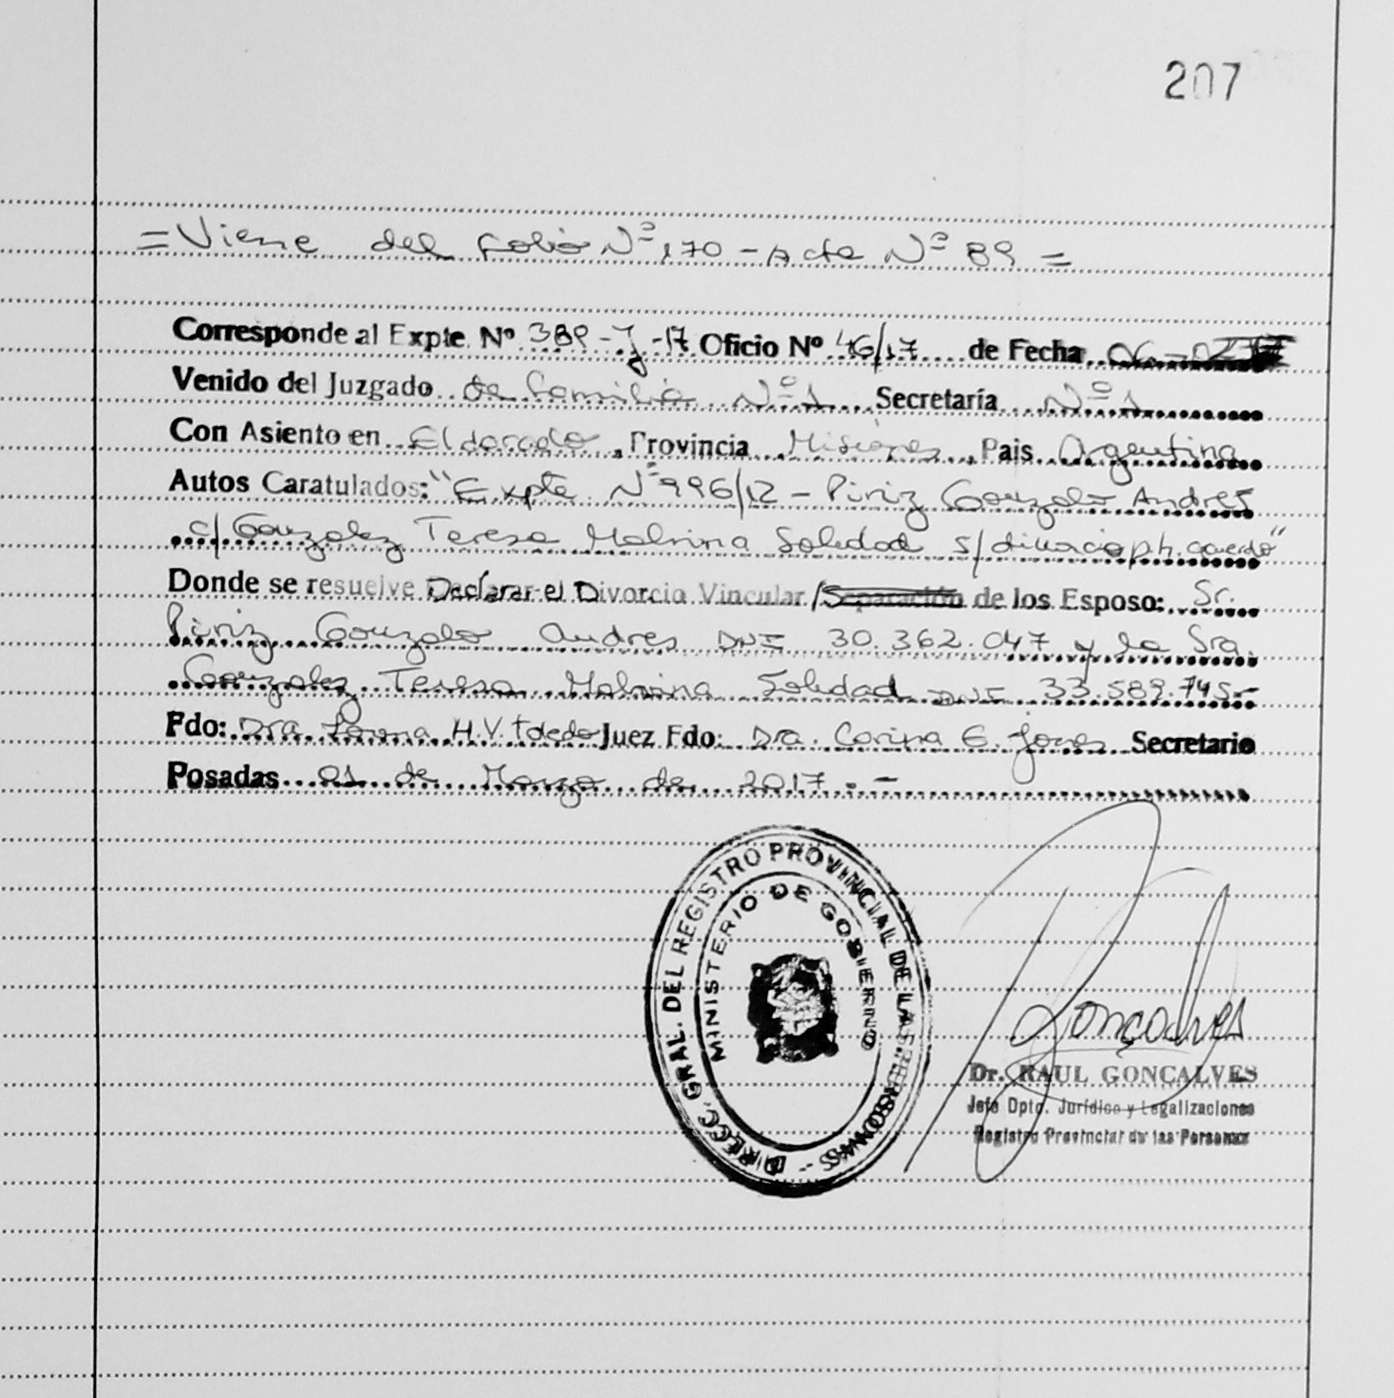 207
= Viene del folio Nº 170 - Acta Nº 89 =
Corresponde al Expte. Nº 389-J-17 Oficio Nº 46/17 de Fecha 06-02-17
Venido del Juzgado de Familia Nº 1 Secretaría Nº 1
Con Asiento en Eldorado, Provincia Misiones, Pais Argentina
Autos Caratulados: "Expte Nº 996/12 - Piriz Gonzalo Andres
c/ Gonzalez Teresa Malvina Soledad s/ divorcio p.h. acuerdo"
Donde se resuelve Declarar el Divorcio Vincular / Separación de los Esposo: Sr.
Piriz Gonzalo Andres DNI 30.362.047 y la Sra.
Gonzalez Teresa Malvina Soledad DNI 33.589.745.-
Fdo: Dra. Lorena H.V. Toledo Juez Fdo: Dra. Carina E. Jones Secretario
Posadas 01 de Marzo de 2017.-
DIRECC. GRAL. DEL REGISTRO PROVINCIAL DE LAS PERSONAS -
MINISTERIO DE GOBIERNO
Gonçalves
Dr. RAUL GONÇALVES
Jefe Dpto. Jurídico y Legalizaciones
Registro Provincial de las Personas